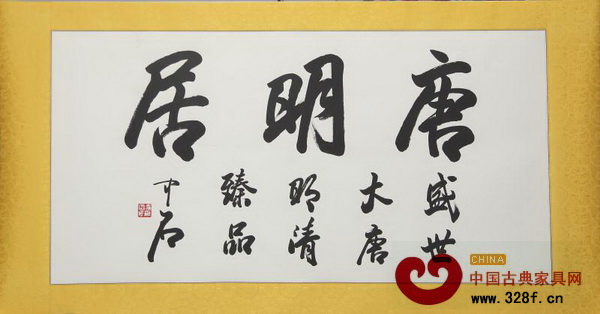 唐明居
盛世
大唐
明清
臻品
中石
CHINA
中国古典家具网
www.328f.cn